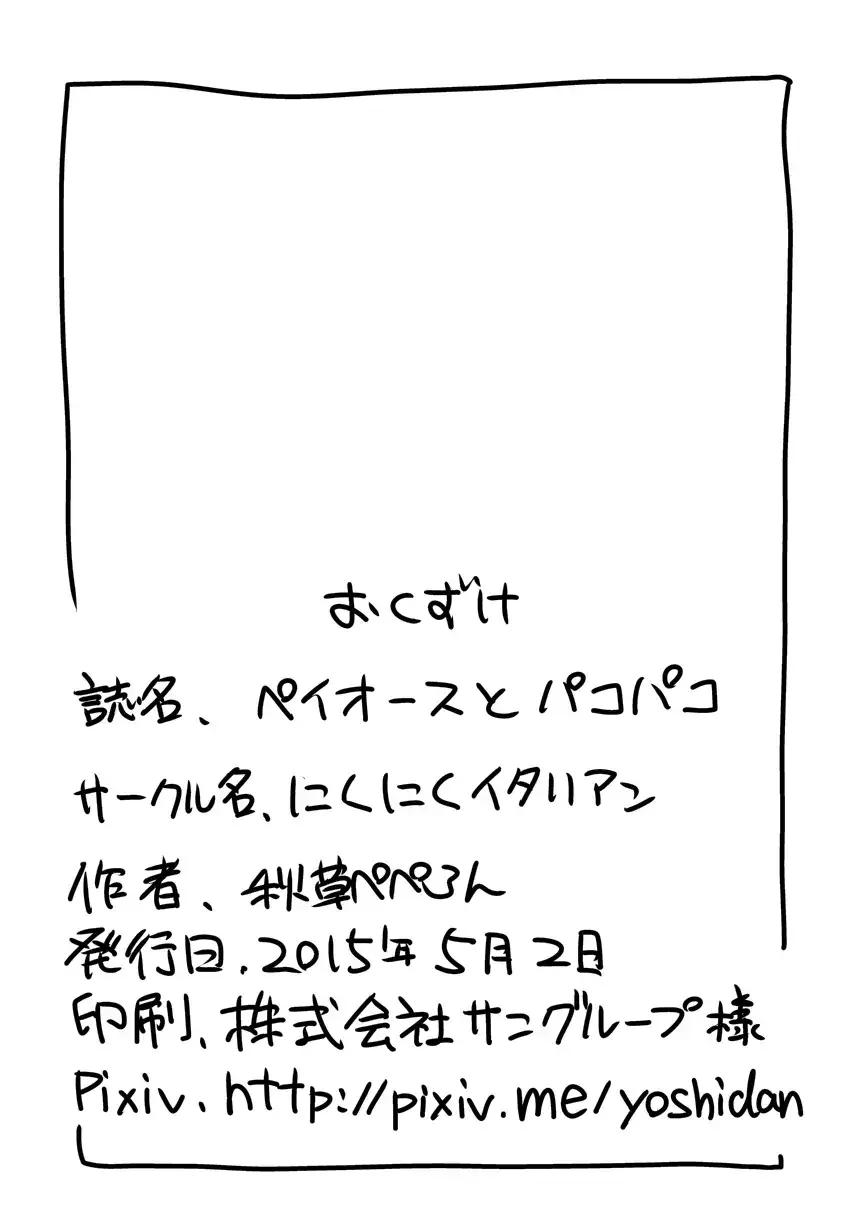 おくずけ
誌名、ペイオースとパコパコ
サークル名、にくにくイタリアン
作者、秋草ぺぺろん
発行日.2015年5月2日
印刷、株式会社サングループ様
Pixiv.http://pixiv.me/yoshidan